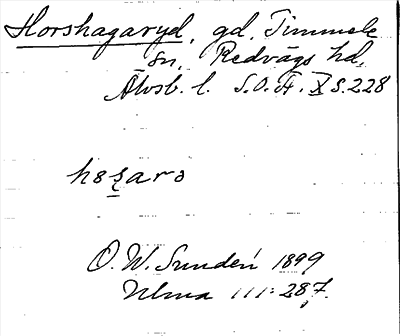 Horshagaryd, gd, Timmele
sn, Redvägs hd,
Älvsb. l. S.O.Ä. X s. 228
O. W. Sundén 1899
Ulma 111: 287.